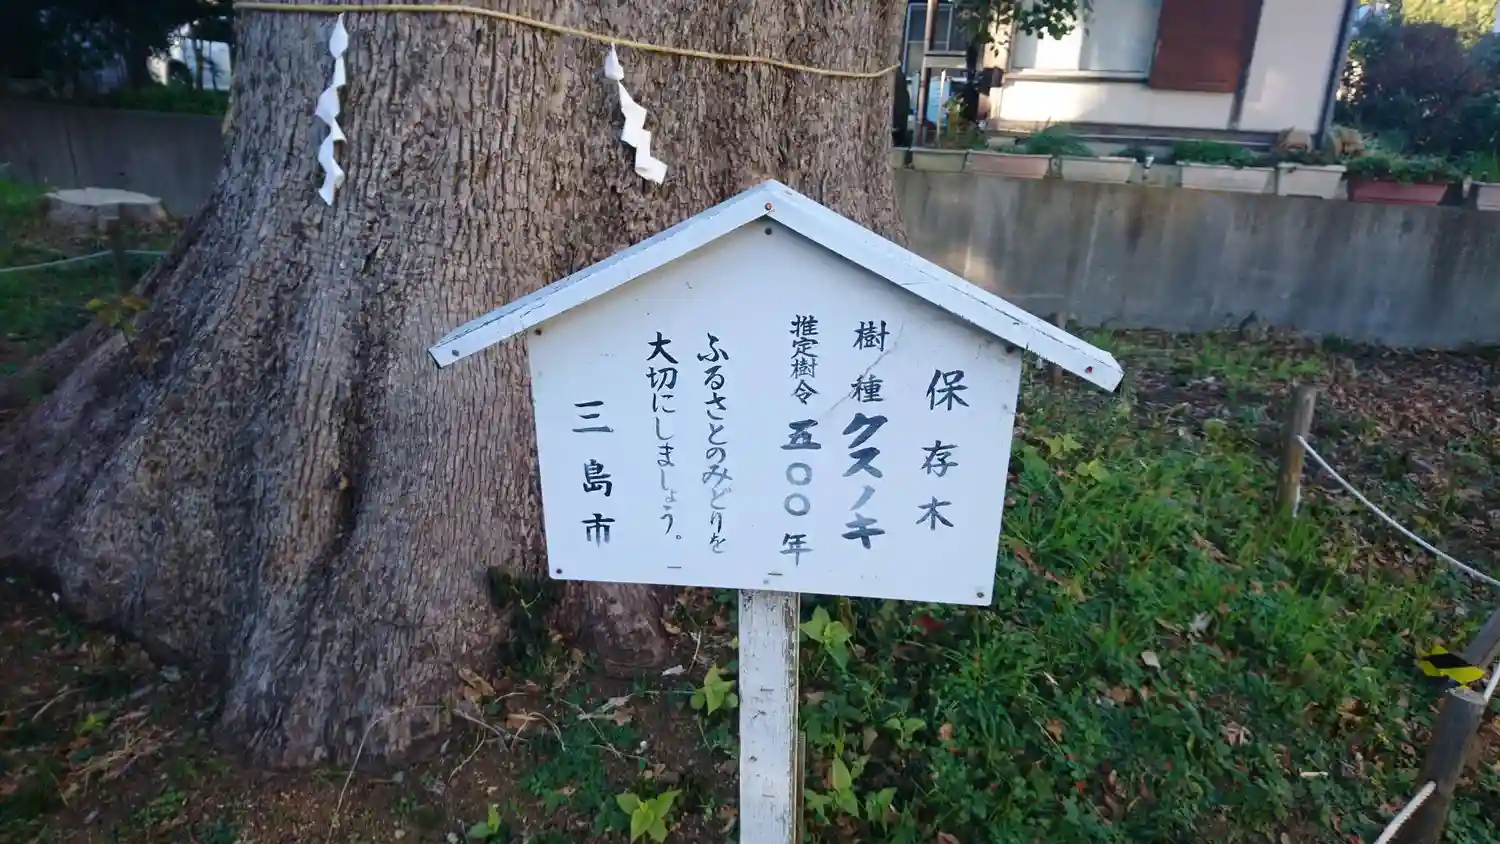 保存木
樹種 クスノキ
推定樹令 五〇〇年
ふるさとのみどりを
大切にしましょう。
三島市